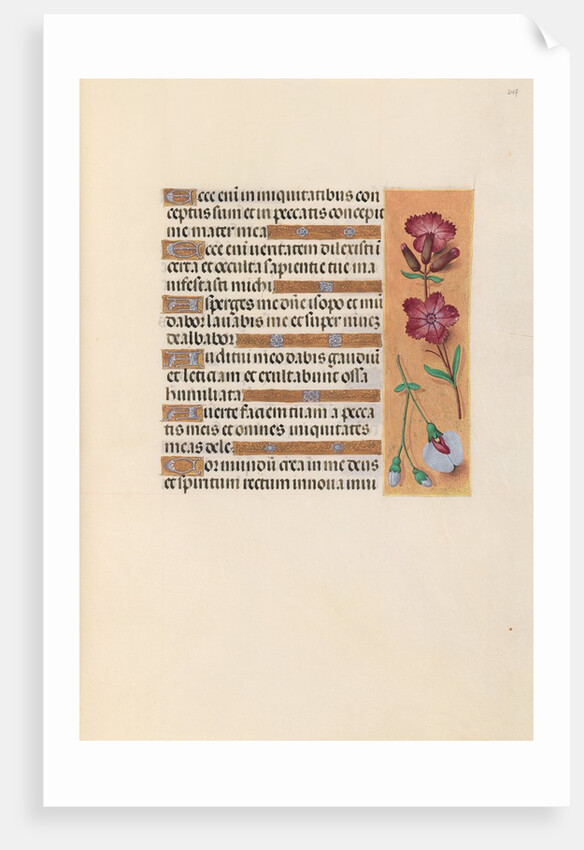 247
Ecce eni in iniquitatibus con
ceptus sum et in peccatis concepit
me mater mea
Ecce eni ueritatem dilexisti
certa et occulta sapientie tue ma
nifestasti michi
Asperges me dne isopo et mu
dabor lauabis me et super niuez
dealbabor
Auditui meo dabis gaudiu
et leticiam et exultabunt ossa
humiliata
Auerte faciem tuam a pecca
tis meis et omnes iniquitates
meas dele
Cor mundu crea in me deus
et spiritum rectum innoua in ui